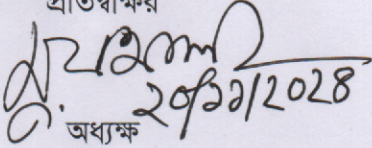 প্রতিস্বাক্ষর
২০/১১/২০২৪
অধ্যক্ষ